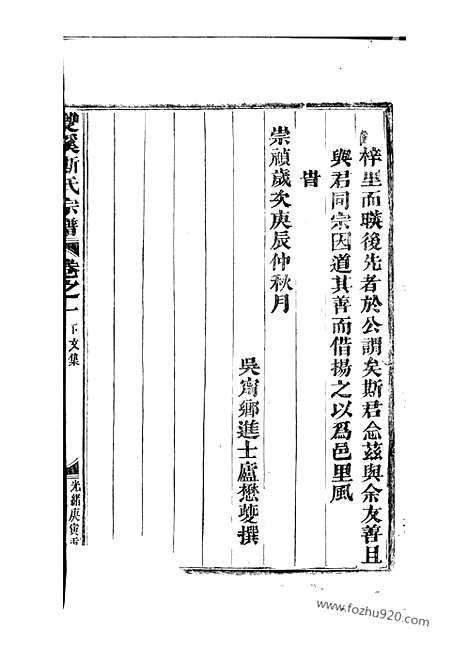 梓里而暎後先者於公謂矣斯君念茲與余友善且
與君同宗因道其善而借揚之以爲邑里風
旹
崇禎歲次庚辰仲秋月
吳甯鄉進士盧懋夔撰
雙溪斯氏宗譜
卷之一
下文集
光緒庚寅重
www.fozhu920.com